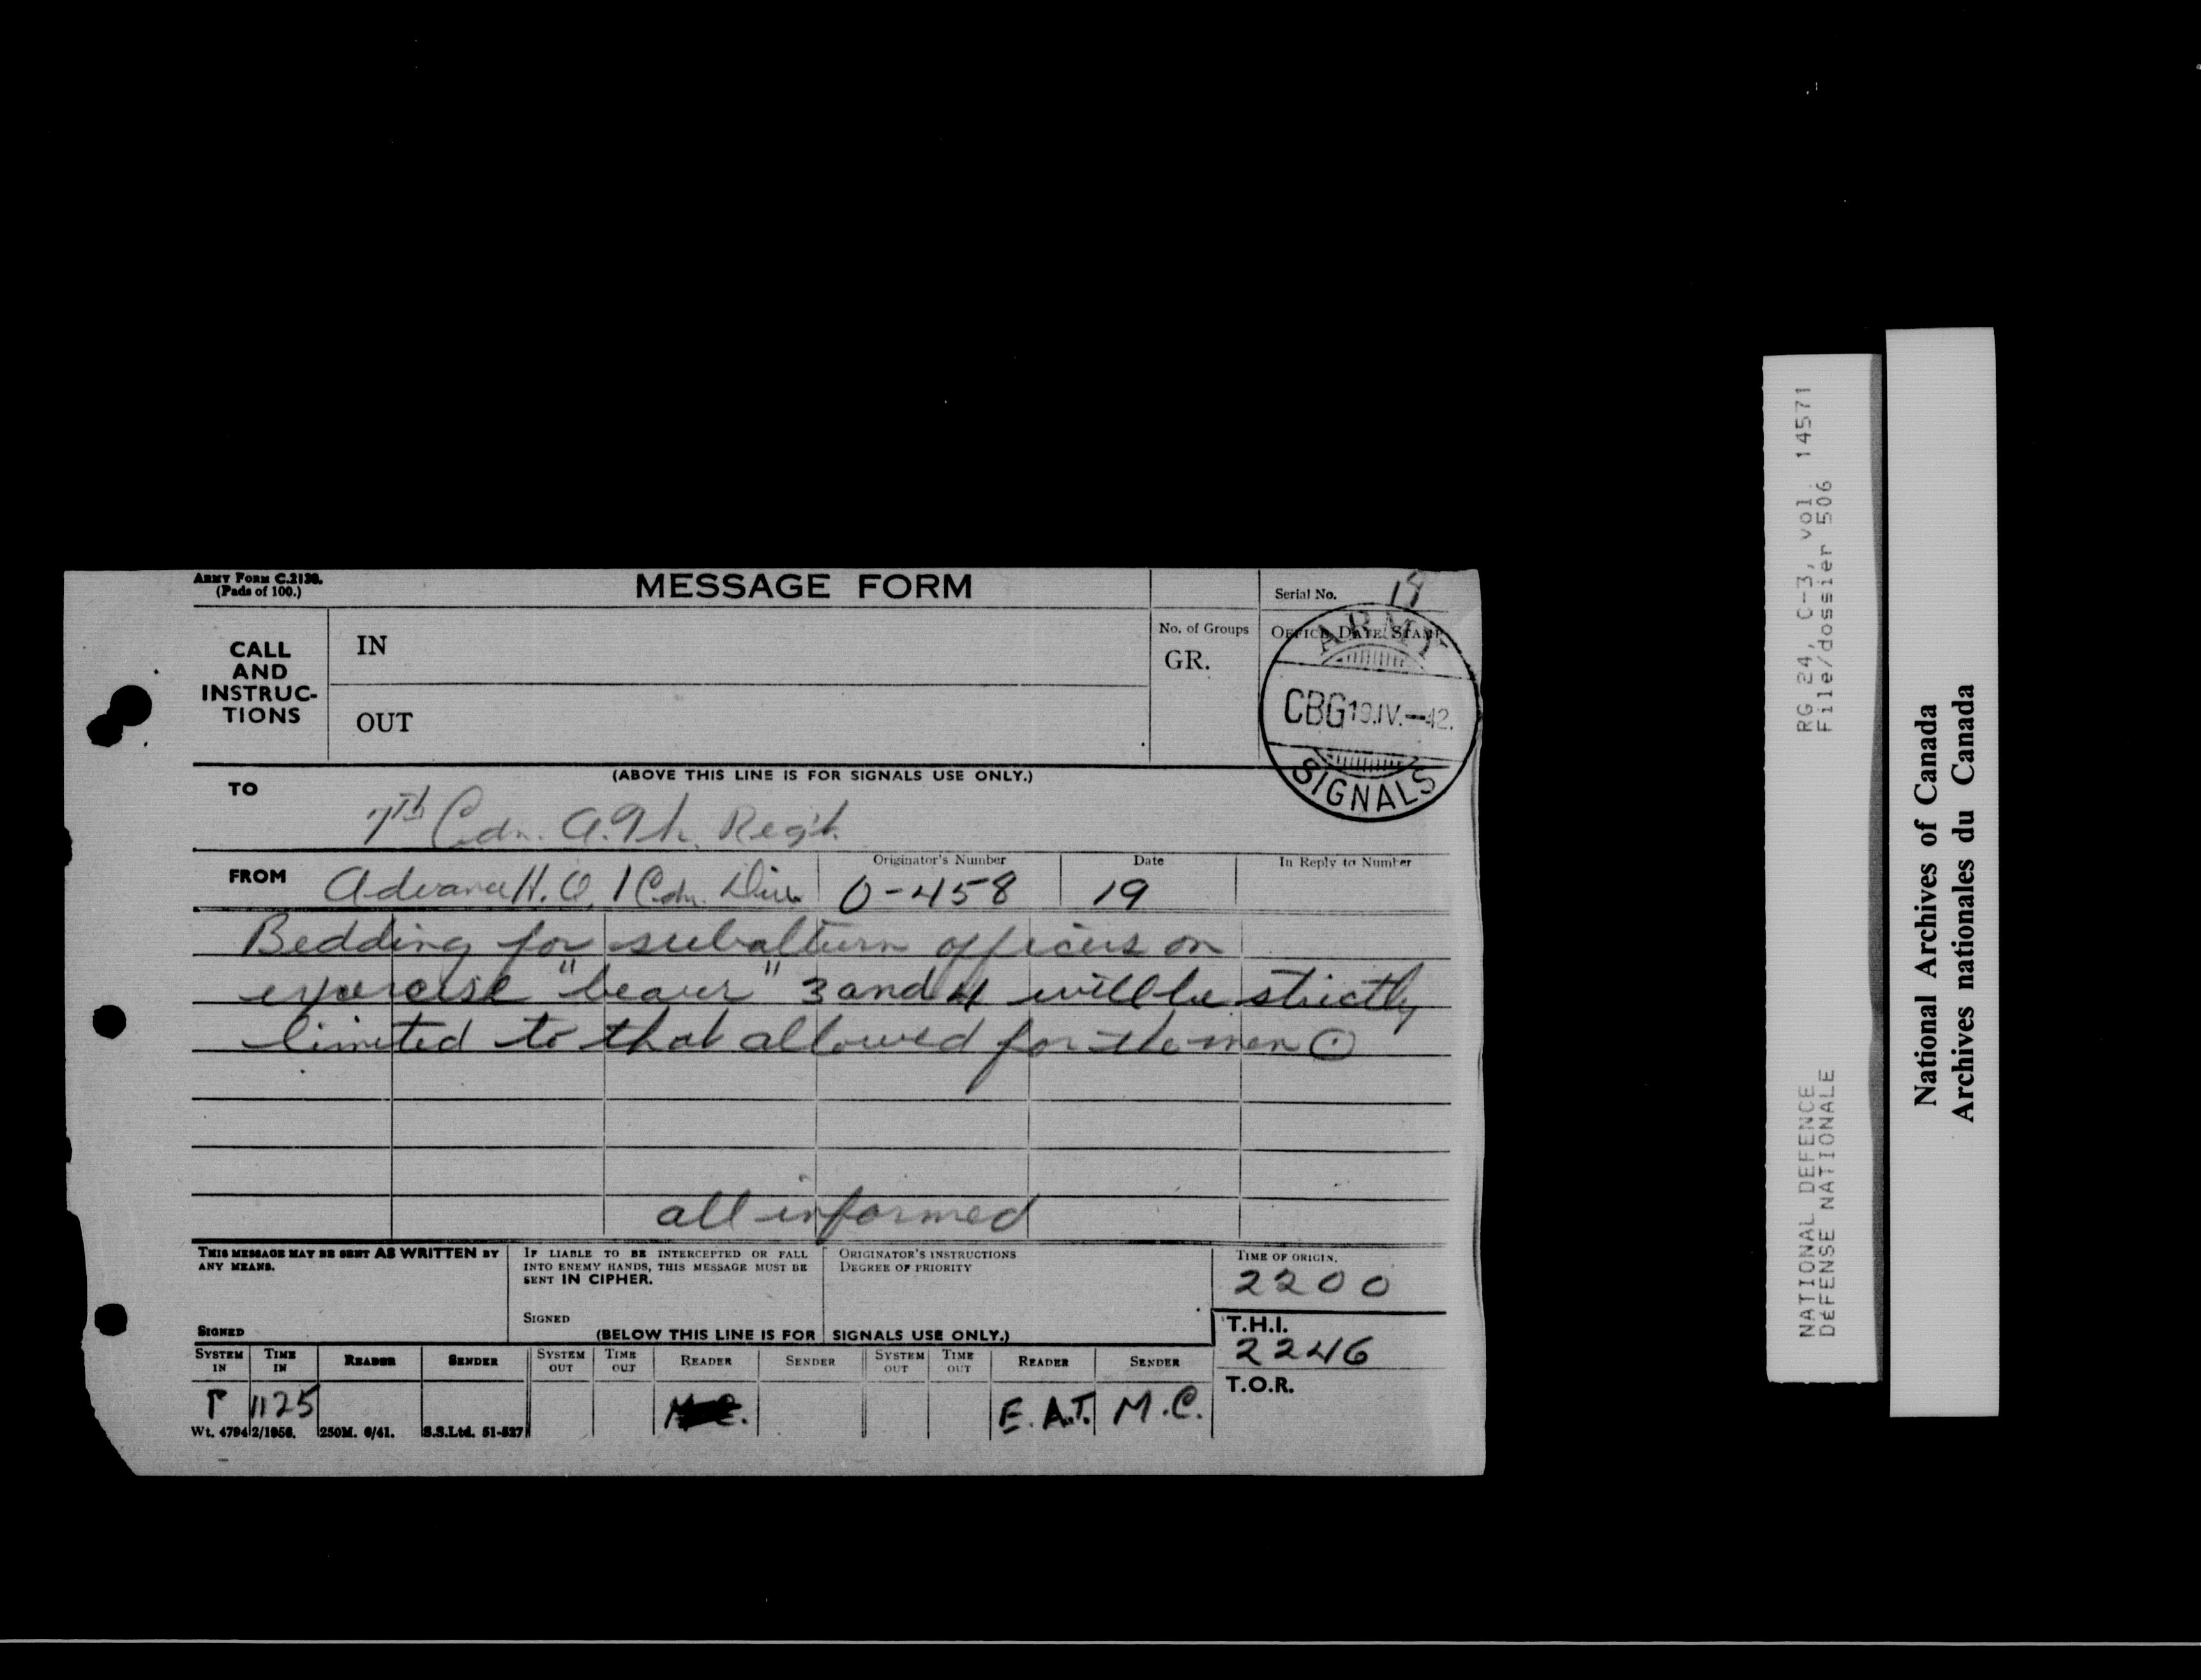 ARMY FORM C.2130.
(Pads of 100.)
MESSAGE FORM
Serial No.
CALL
AND
INSTRUC-
TIONS
IN
OUT
No. of Groups
GR.
OFFICE DATE STAMP
ARMY
CBG 19.IV.—42.
SIGNALS
(ABOVE THIS LINE IS FOR SIGNALS USE ONLY.)
TO
7th Cdn. Regt.
FROM
Advance H.Q. 1 Cdn. Div
Originator's Number
O-458
Date
19
In Reply to Number
Bedding for subalturn officers on
exercise "beaver" 3 and 4 will be strictly
limited to that allowed for the men ⊙
all informed
THIS MESSAGE MAY BE SENT AS WRITTEN BY
ANY MEANS.
SIGNED
IF LIABLE TO BE INTERCEPTED OR FALL
INTO ENEMY HANDS, THIS MESSAGE MUST BE
SENT IN CIPHER.
SIGNED
ORIGINATOR'S INSTRUCTIONS
DEGREE OF PRIORITY
TIME OF ORIGIN.
2200
T.H.I.
2246
T.O.R.
(BELOW THIS LINE IS FOR SIGNALS USE ONLY.)
SYSTEM IN TIME IN READER SENDER SYSTEM OUT TIME OUT READER SENDER SYSTEM OUT TIME OUT READER SENDER
1125 E.A.T. M.C.
Wt. 47942/1956. 250M. 6/41. S.S.Ltd. 51-527
RG 24, C-3, vol. 14571
File/dossier 506
NATIONAL DEFENCE
DÉFENSE NATIONALE
National Archives of Canada
Archives nationales du Canada